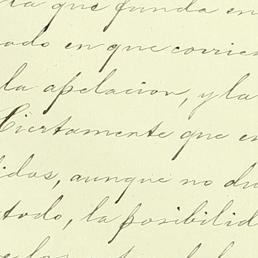 ta que funda en
ado en que corrie
la apelacion, y la
Ciertamente que en
idas, aunque no du
todo, la posibilid